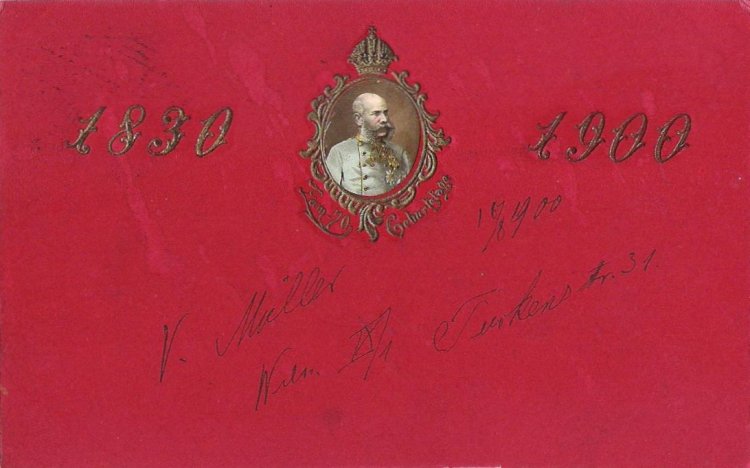 1830 1900
Zum 70. Geburtstage
18/8 1900
V. Müller
Wien IX/1 Türkenstr. 31.